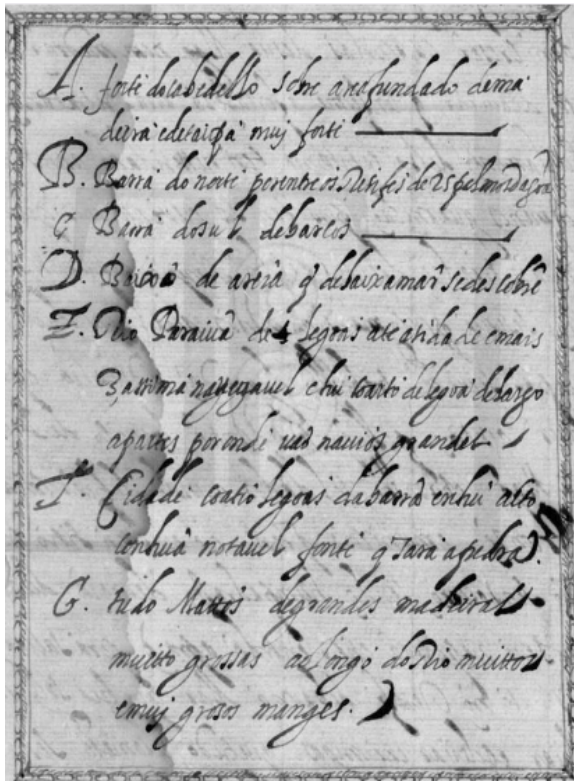 A. forte do cabedello sobre area fundado de ma
deira e de taipa muj forte
B. Barra do norte per entre os Resifes de 25 palmos dagoa
C Barra do sul de barcos
D. Baixos de areia q̃ de baixa mar se descobrẽ
E. Rio Paraiva de 4 legoas ate a cidade e mais
3 assima navegavel e hũ coarto de legoa de largo
a partes por onde vaõ navios grandes
F. Cidade coatro legoas da barra en hũ alto
con huã notavel fonte q̃
G. tudo Mattos de grandes madeiras
muitto grossas ao longo do Rio muittos
e muj grosos manges.